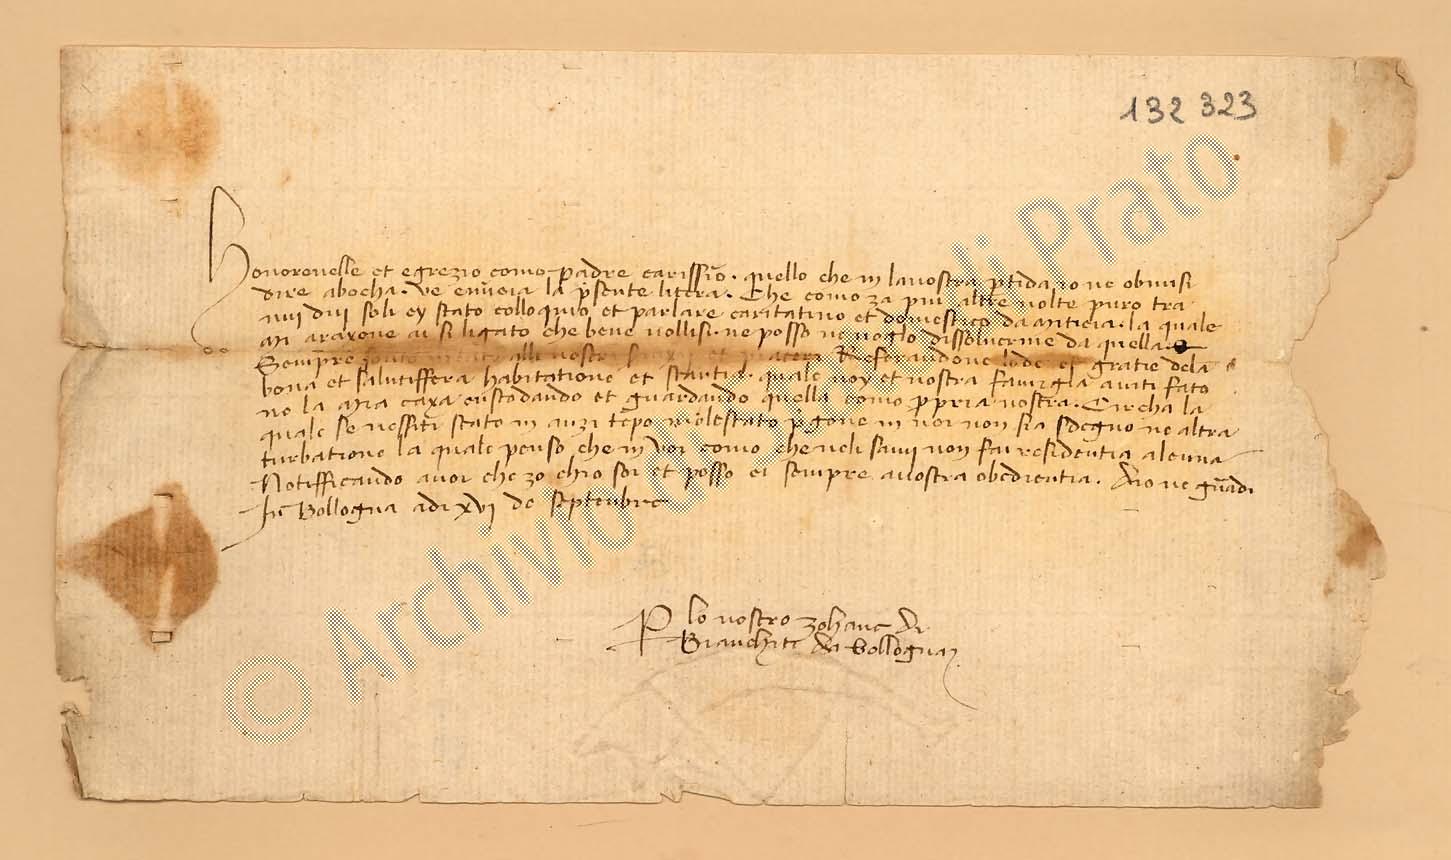 132 323
Honorevelle et egrezio como padre carissimo. quello che in la vostra ptida io ne obmisi
dire a bocha. ve enveia la psente litera. Che como za piu altre volte puro tra
nui dui soli ey stato colloquio et parlare caritativo et domestego da miticia. la quale
m a raxone ai si ligato che bene vollisi. ne posso ne voglo dissolverme da quella
Sempre alli vostri et piaceri Referandove lode et gratie dela
bona et salutiffera habitatione et stantia. quale voy et vostra famigla aviti fato
ne la mia caxa custodando et guardando quella como ppria vostra. Circha la
quale se vessiti stato in anzi tepo molestato pgone in voi non sia sdegno ne altra
turbatione la quale penso che in voi como che neli savii non fa residentia alcuna
Notifficando a voi che zo chio soi et posso ei sempre a vostra obedientia. Dio ve guadi
In Bollogna adi xvi de Septembre
P lo vostro zohane di
Bianchite da bollogna
© Archivio di Stato di Prato